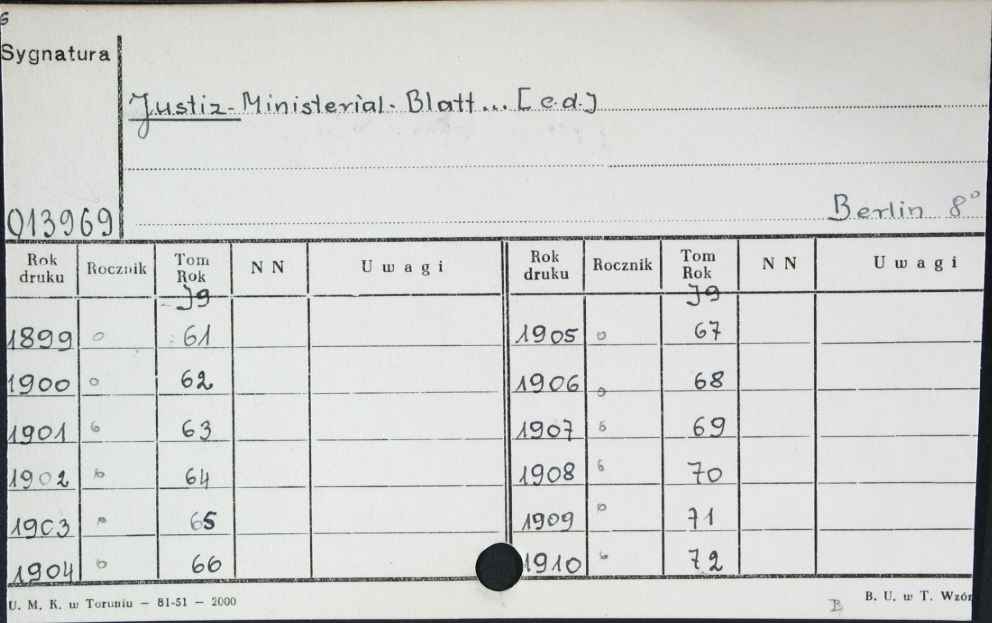 6
Sygnatura
Justiz-Ministerial-Blatt... [c.d.]
013969
Berlin 8°
Rok druku Rocznik Tom Rok NN Uwagi Rok druku Rocznik Tom Rok NN Uwagi
Jg Jg
1899 61 1905 67
1900 62 1906 68
1901 63 1907 69
1902 64 1908 70
1903 65 1909 71
1904 66 1910 72
U. M. K. w Toruniu — 81-51 — 2000
B
B. U. w T. Wzór